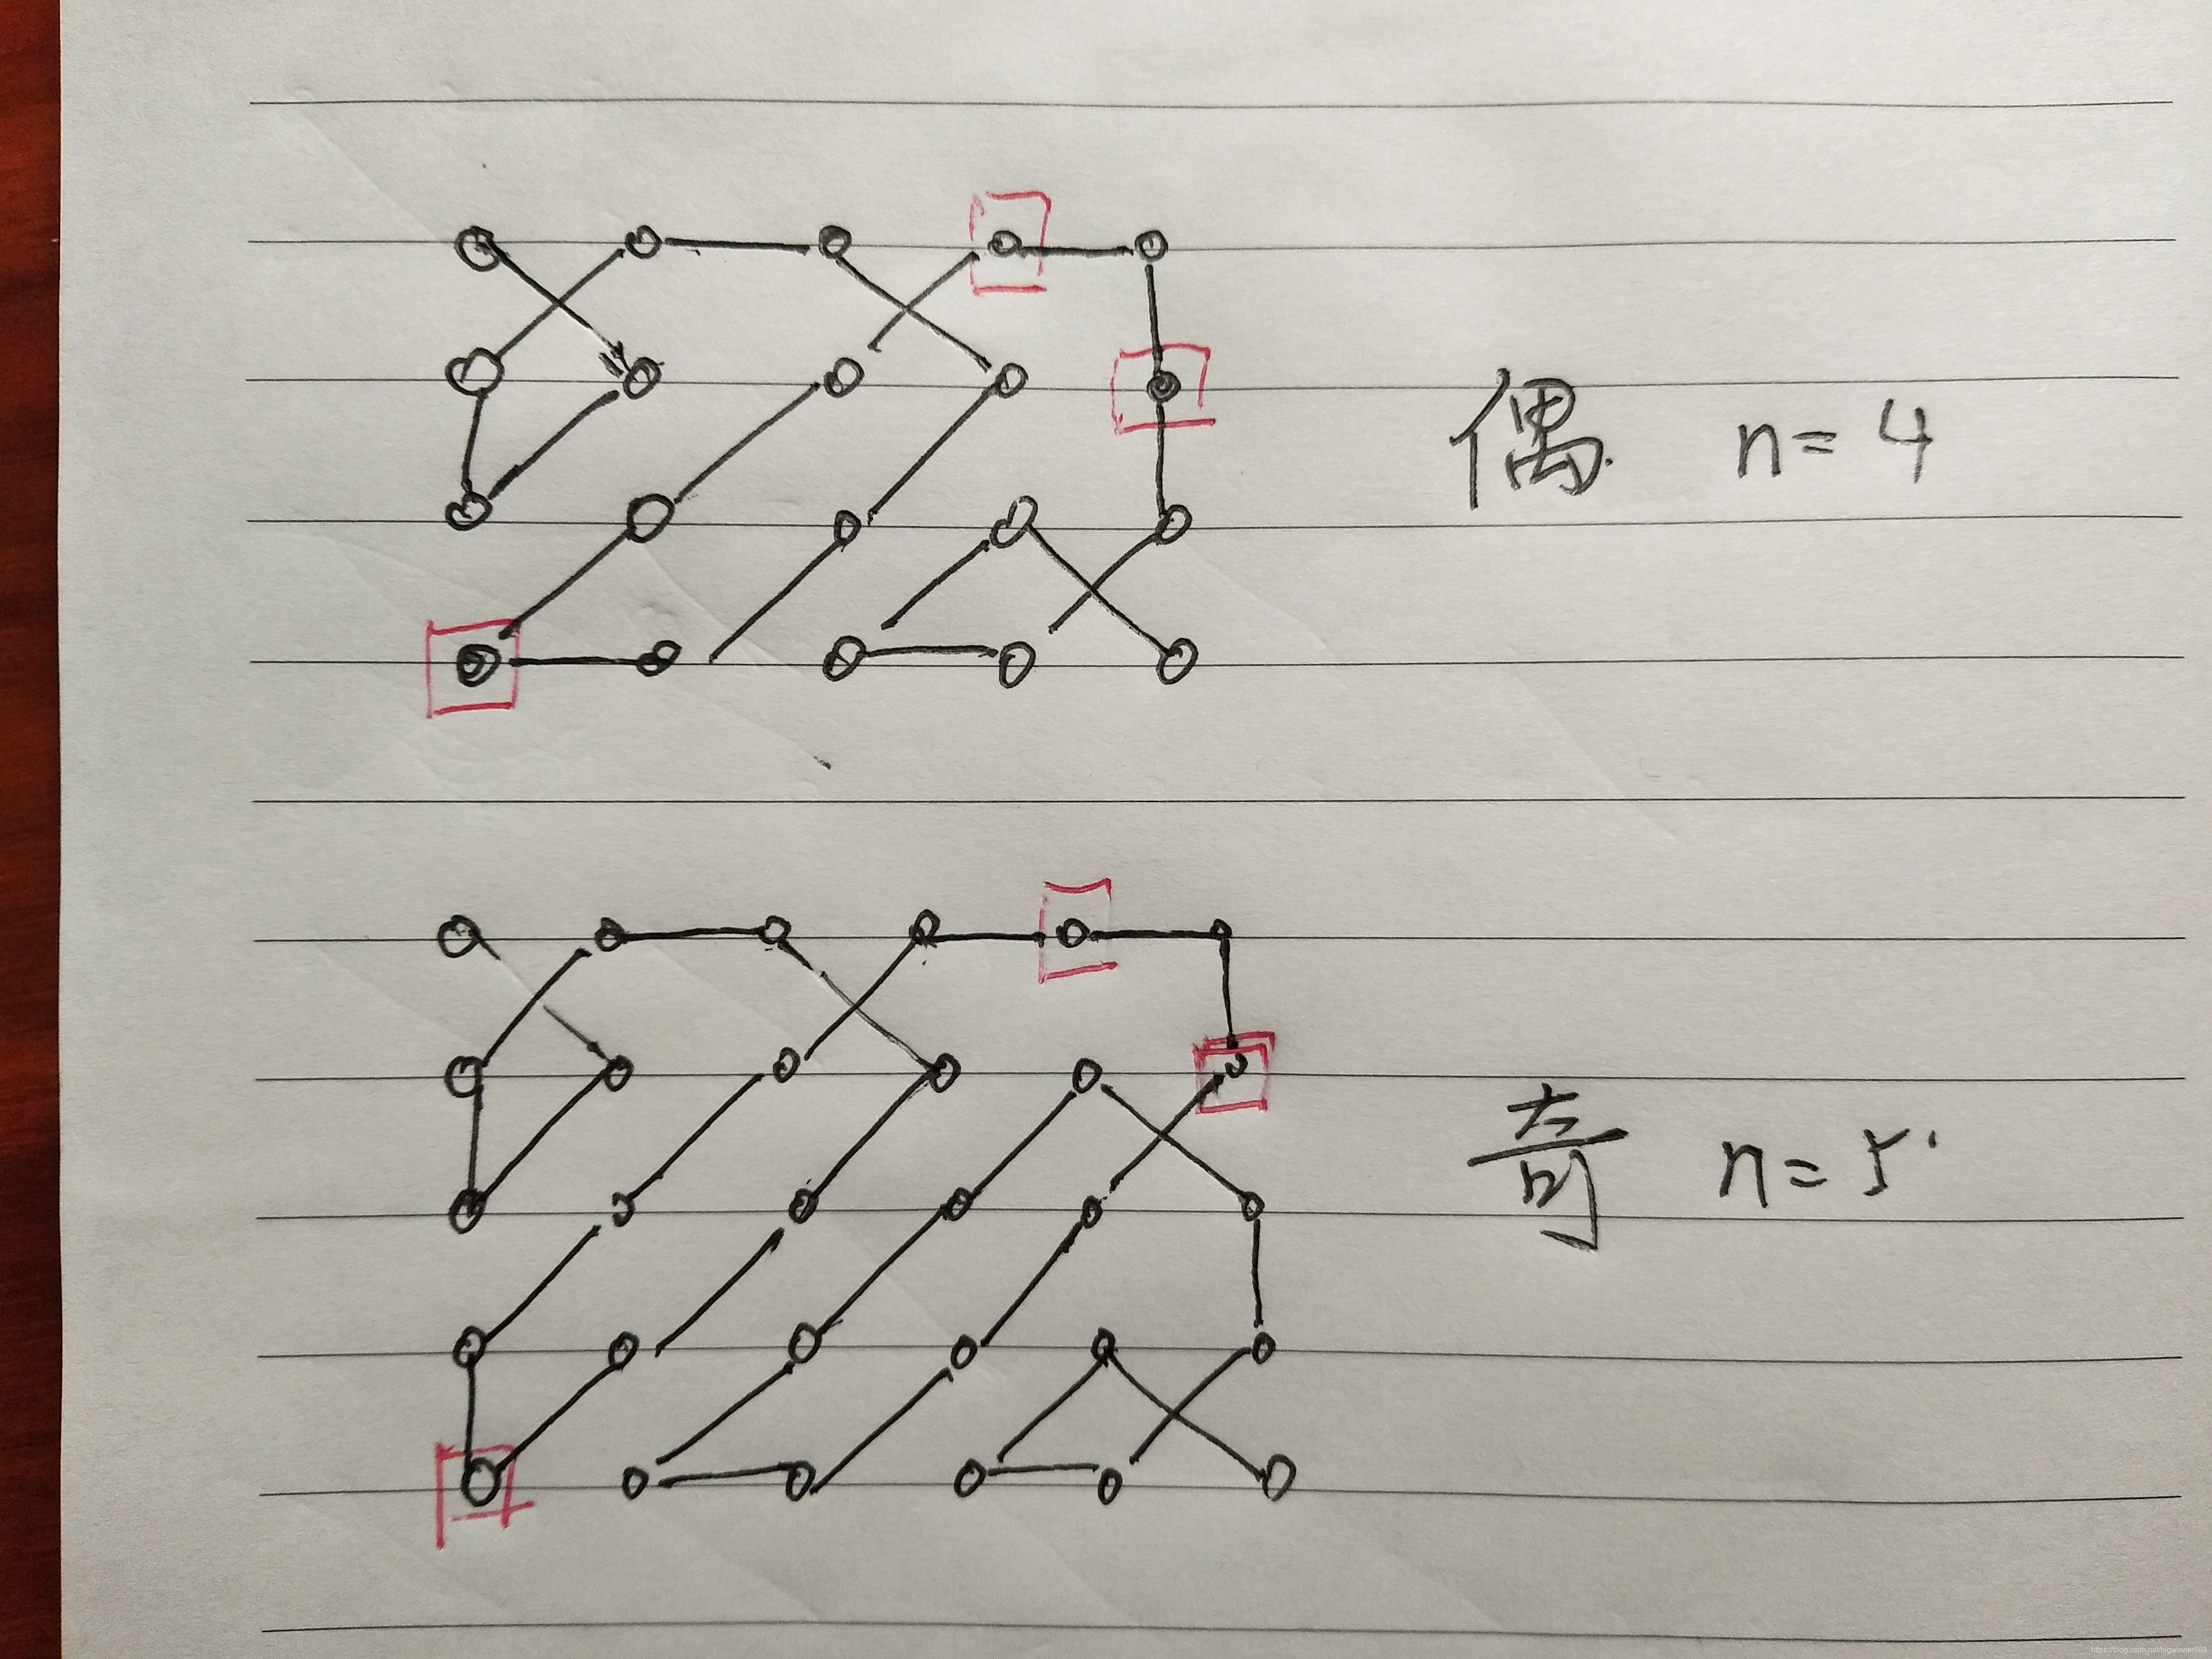 偶 n=4
奇 n=5
https://blog.csdn.net/bigwinner888